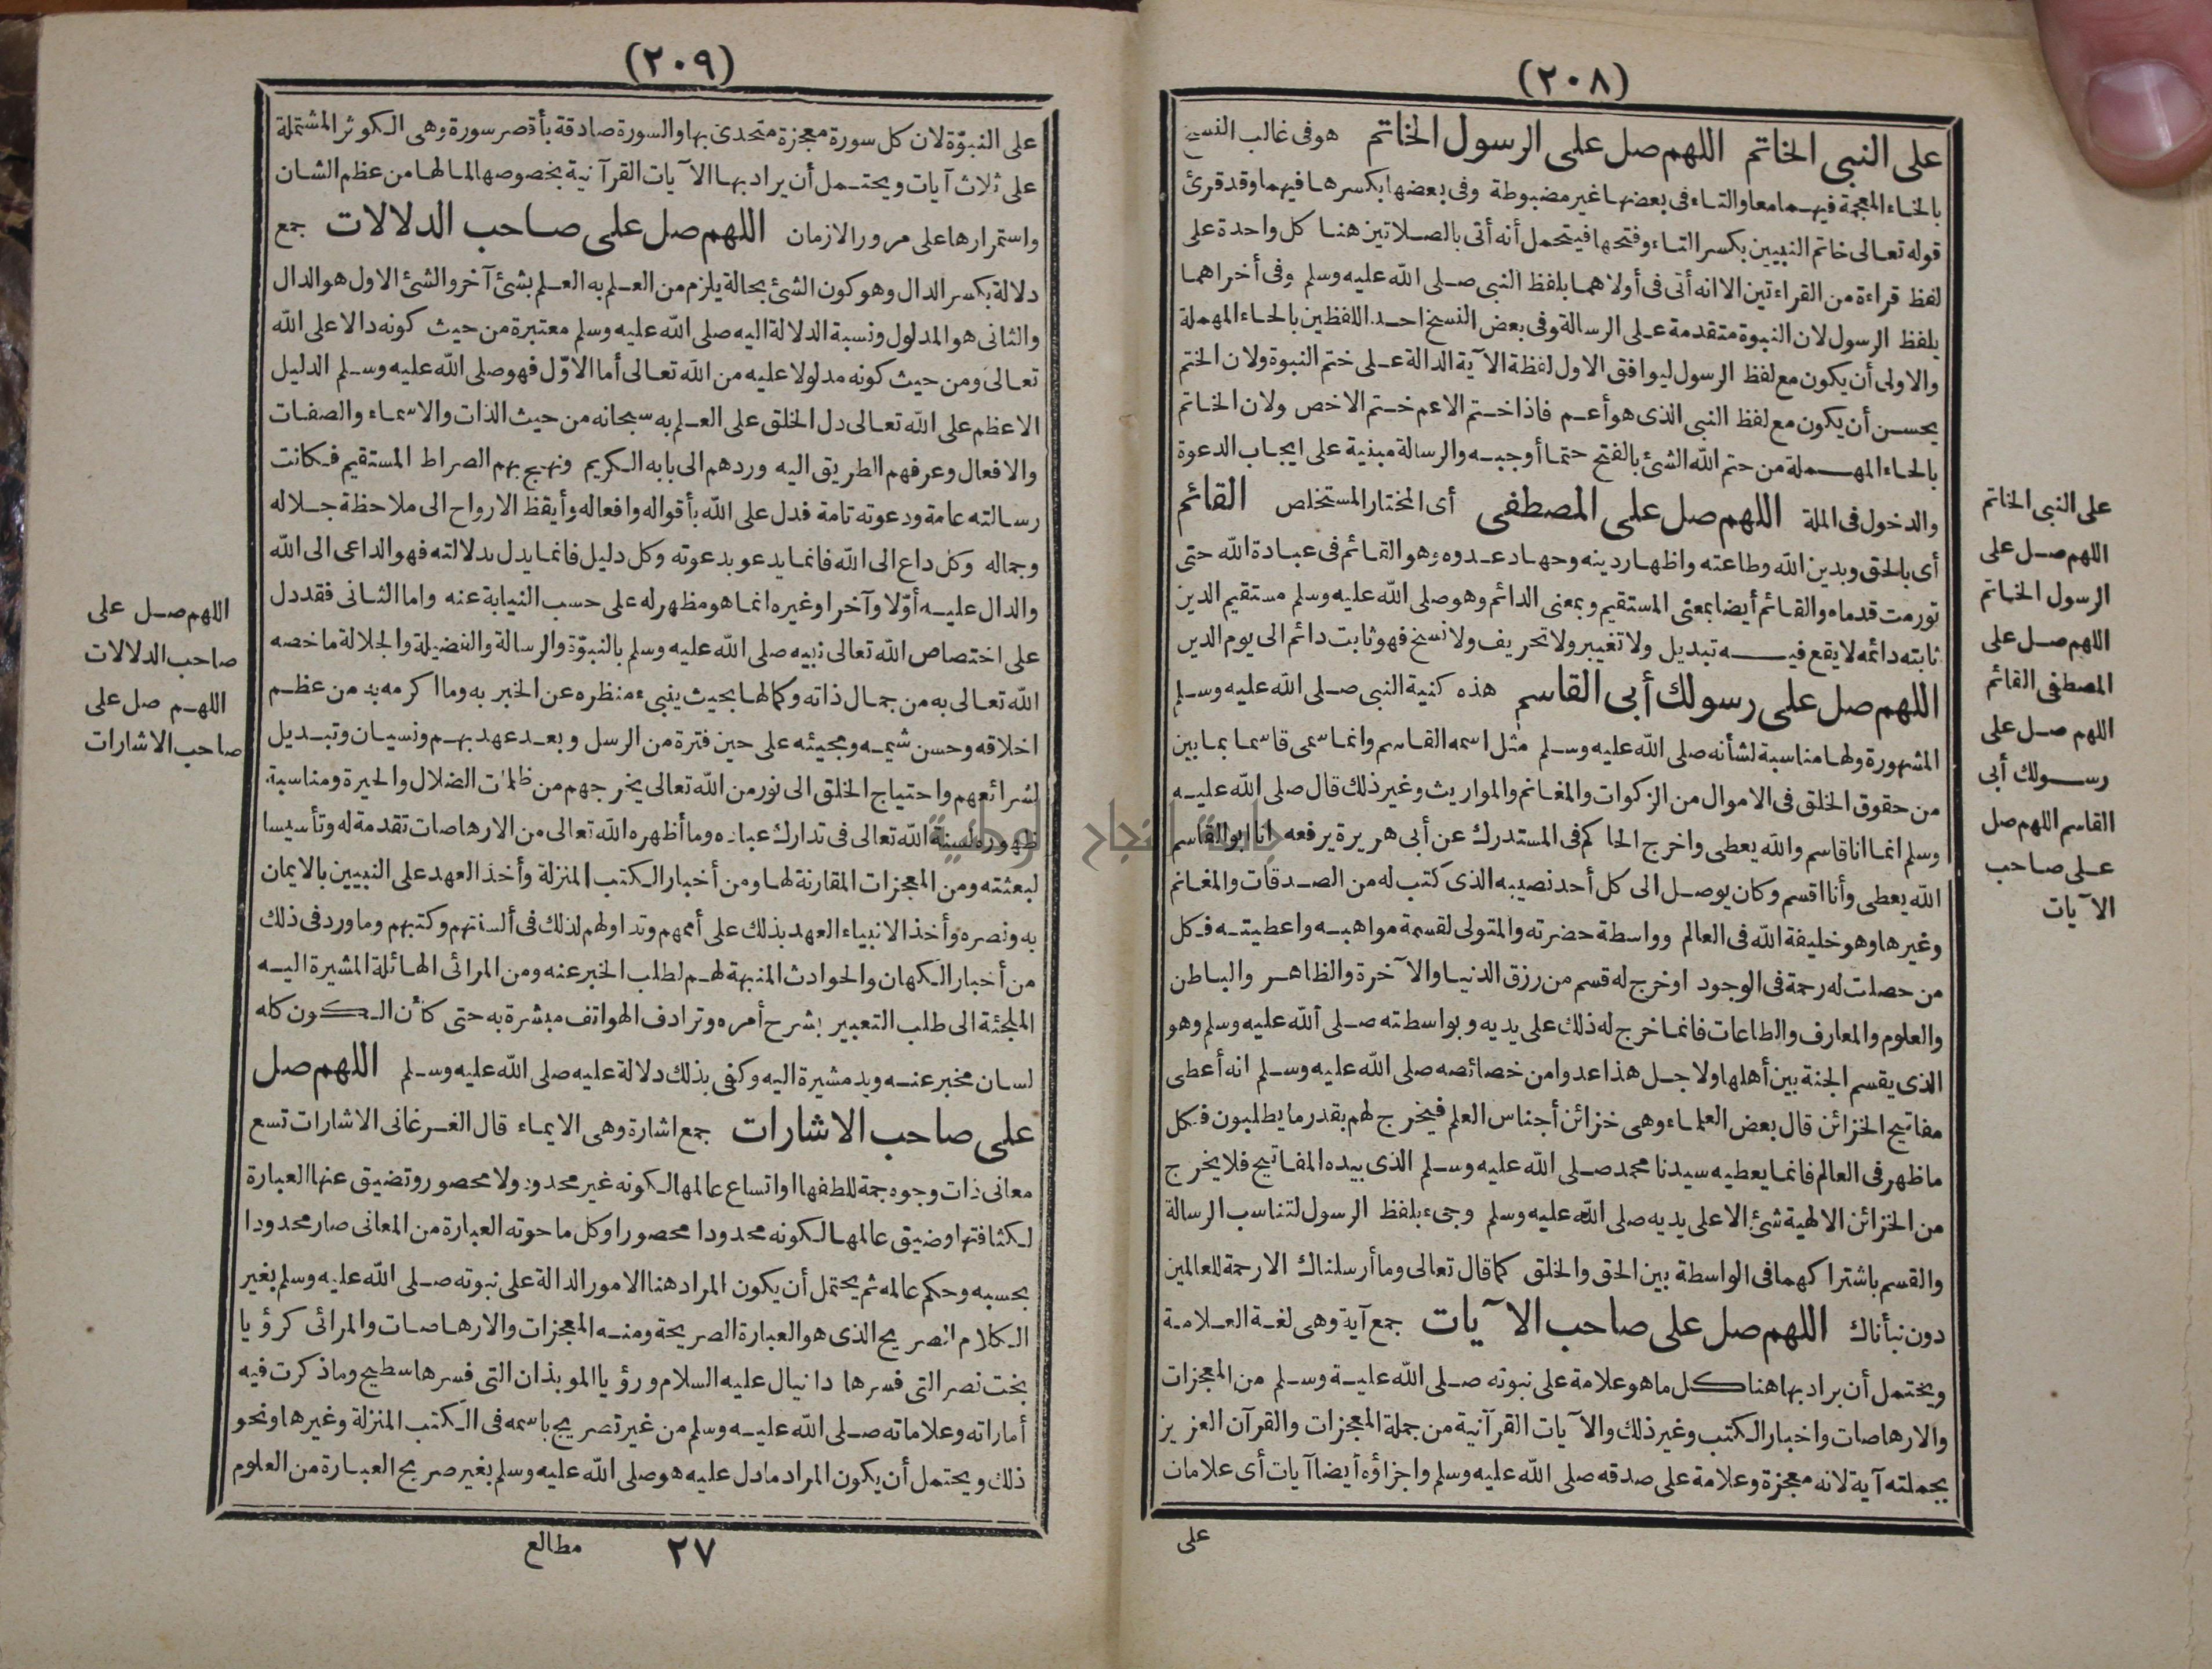 (٢٠٨)
على النبى الخاتم اللهم صل على الرسول الخاتم هو فى غالب النسخ
بالخاء المعجمة فيهما معا والتاء فى بعضها غير مضبوطة وفى بعضها بكسرها فيهما وقد قرئ
قوله تعالى خاتم النبيين بكسر التاء وفتحها فيحتمل أنه أتى بالصلاتين هنا كل واحدة على
لفظ قراءة من القراءتين الا انه أتى فى أولاهما بلفظ النبى صلى الله عليه وسلم وفى أخراهما
بلفظ الرسول لان النبوة متقدمة على الرسالة وفى بعض النسخ احد اللفظين بالحاء المهملة
والاولى أن يكون مع لفظ الرسول ليوافق الاول لفظة الآية الدالة على ختم النبوة ولان الختم
يحسن أن يكون مع لفظ النبى الذى هو أعم فاذا ختم الاعم ختم الاخص ولان الخاتم
بالحاء المهملة من حتم الله الشئ بالفتح حتما أوجبه والرسالة مبنية على ايجاب الدعوة
والدخول فى الملة اللهم صل على المصطفى أى المختار المستخلص القائم
أى بالحق وبدين الله وطاعته واظهار دينه وجهاد عدوه وهو القائم فى عبادة الله حتى
تورمت قدماه والقائم أيضا بمعنى المستقيم وبمعنى الدائم وهو صلى الله عليه وسلم مستقيم الدين
ثابته دائمه لا يقع فيه تبديل ولا تغيير ولا تحريف ولا نسخ فهو ثابت دائم الى يوم الدين
اللهم صل على رسولك أبى القاسم هذه كنية النبى صلى الله عليه وسلم
المشهورة ولها مناسبة لشأنه صلى الله عليه وسلم مثل اسمه القاسم وانما سمى قاسما بما بين
من حقوق الخلق فى الاموال من الزكوات والمغانم والمواريث وغير ذلك قال صلى الله عليه
وسلم انما انا قاسم والله يعطى واخرج الحاكم فى المستدرك عن أبى هريرة يرفعه انا ابو القاسم
الله يعطى وأنا اقسم وكان يوصل الى كل أحد نصيبه الذى كتب له من الصدقات والمغانم
وغيرها وهو خليفة الله فى العالم وواسطة حضرته والمتولى لقسمة مواهبه واعطيته فكل
من حصلت له رحمة فى الوجود او خرج له قسم من رزق الدنيا والآخرة والظاهر والباطن
والعلوم والمعارف والطاعات فانما خرج له ذلك على يديه وبواسطته صلى الله عليه وسلم وهو
الذى يقسم الجنة بين أهلها ولاجل هذا عدوا من خصائصه صلى الله عليه وسلم انه أعطى
مفاتيح الخزائن قال بعض العلماء وهى خزائن أجناس العلم فيخرج لهم بقدر ما يطلبون فكل
ما ظهر فى العالم فانما يعطيه سيدنا محمد صلى الله عليه وسلم الذى بيده المفاتيح فلا يخرج
من الخزائن الالهية شئ الا على يديه صلى الله عليه وسلم وجىء بلفظ الرسول لتناسب الرسالة
والقسم باشتراكهما فى الواسطة بين الحق والخلق كما قال تعالى وما أرسلناك الا رحمة للعالمين
دون نبأناك اللهم صل على صاحب الآيات جمع آية وهى لغة العلامة
ويحتمل أن يراد بها هنا كل ما هو علامة على نبوته صلى الله عليه وسلم من المعجزات
والارهاصات واخبار الكتب وغير ذلك والآيات القرآنية من جملة المعجزات والقرآن العزيز
بجملته آية لانه معجزة وعلامة على صدقه صلى الله عليه وسلم واجزاؤه أيضا آيات أى علامات
على
على النبى الخاتم
اللهم صل على
الرسول الخاتم
اللهم صل على
المصطفى القائم
اللهم صل على
رسولك أبى
القاسم اللهم صل
على صاحب
الآيات
(٢٠٩)
على النبوّة لان كل سورة معجزة متحدى بها والسورة صادقة بأقصر سورة وهى الكوثر المشتملة
على ثلاث آيات ويحتمل أن يراد بها الآيات القرآنية بخصوصها لما لها من عظم الشان
واستمرارها على مرور الازمان اللهم صل على صاحب الدلالات جمع
دلالة بكسر الدال وهو كون الشئ بحالة يلزم من العلم به العلم بشئ آخر والشئ الاول هو الدال
والثانى هو المدلول ونسبة الدلالة اليه صلى الله عليه وسلم معتبرة من حيث كونه دالا على الله
تعالى ومن حيث كونه مدلولا عليه من الله تعالى أما الاوّل فهو صلى الله عليه وسلم الدليل
الاعظم على الله تعالى دل الخلق على العلم به سبحانه من حيث الذات والاسماء والصفات
والافعال وعرفهم الطريق اليه وردهم الى بابه الكريم ونهج بهم الصراط المستقيم فكانت
رسالته عامة ودعوته تامة فدل على الله بأقواله وافعاله وأيقظ الارواح الى ملاحظة جلاله
وجماله وكل داع الى الله فانما يدعو بدعوته وكل دليل فانما يدل بدلالته فهو الداعى الى الله
والدال عليه أوّلا وآخرا وغيره انما هو مظهر له على حسب النيابة عنه واما الثانى فقد دل
على اختصاص الله تعالى نبيه صلى الله عليه وسلم بالنبوّة والرسالة والفضيلة والجلالة ما خصه
الله تعالى به من جمال ذاته وكمالها بحيث ينبىء منظره عن الخبر به وما اكرمه به من عظم
اخلاقه وحسن شيمه ومجيئه على حين فترة من الرسل وبعد عهد بهم ونسيان وتبديل
لشرائعهم واحتياج الخلق الى نور من الله تعالى يخرجهم من ظلمات الضلال والحيرة ومناسبة
ظهوره لسنة الله تعالى فى تدارك عباده وما أظهره الله تعالى من الارهاصات تقدمة له وتأسيسا
لبعثته ومن المعجزات المقارنة لها ومن أخبار الكتب المنزلة وأخذ العهد على النبيين بالايمان
به ونصره وأخذ الانبياء العهد بذلك على أممهم وتداولهم لذلك فى ألسنتهم وكتبهم وما ورد فى ذلك
من أخبار الكهان والحوادث المنبهة لهم لطلب الخبر عنه ومن المرائى الهائلة المشيرة اليه
الملجئة الى طلب التعبير بشرح أمره وترادف الهواتف مبشرة به حتى كأن الكون كله
لسان مخبر عنه ويد مشيرة اليه وكفى بذلك دلالة عليه صلى الله عليه وسلم اللهم صل
على صاحب الاشارات جمع اشارة وهى الايماء قال الفرغانى الاشارات تسع
معانى ذات وجوه جمة للطفها او اتساع عالمها لكونه غير محدود ولا محصور وتضيق عنها العبارة
لكثافتها وضيق عالمها لكونه محدودا محصورا وكل ما حوته العبارة من المعانى صار محدودا
بحسبه وحكم عالمه ثم يحتمل أن يكون المراد هنا الامور الدالة على نبوته صلى الله عليه وسلم بغير
الكلام الصريح الذى هو العبارة الصريحة ومنه المعجزات والارهاصات والمرائى كرؤيا
بخت نصر التى فسرها دانيال عليه السلام ورؤيا الموبذان التى فسرها سطيح وما ذكرت فيه
أماراته وعلاماته صلى الله عليه وسلم من غير تصريح باسمه فى الكتب المنزلة وغيرها ونحو
ذلك ويحتمل أن يكون المراد ما دل عليه هو صلى الله عليه وسلم بغير صريح العبارة من العلوم
٢٧ مطالع
اللهم صل على
صاحب الدلالات
اللهم صل على
صاحب الاشارات
جامعة النجاح الوطنية